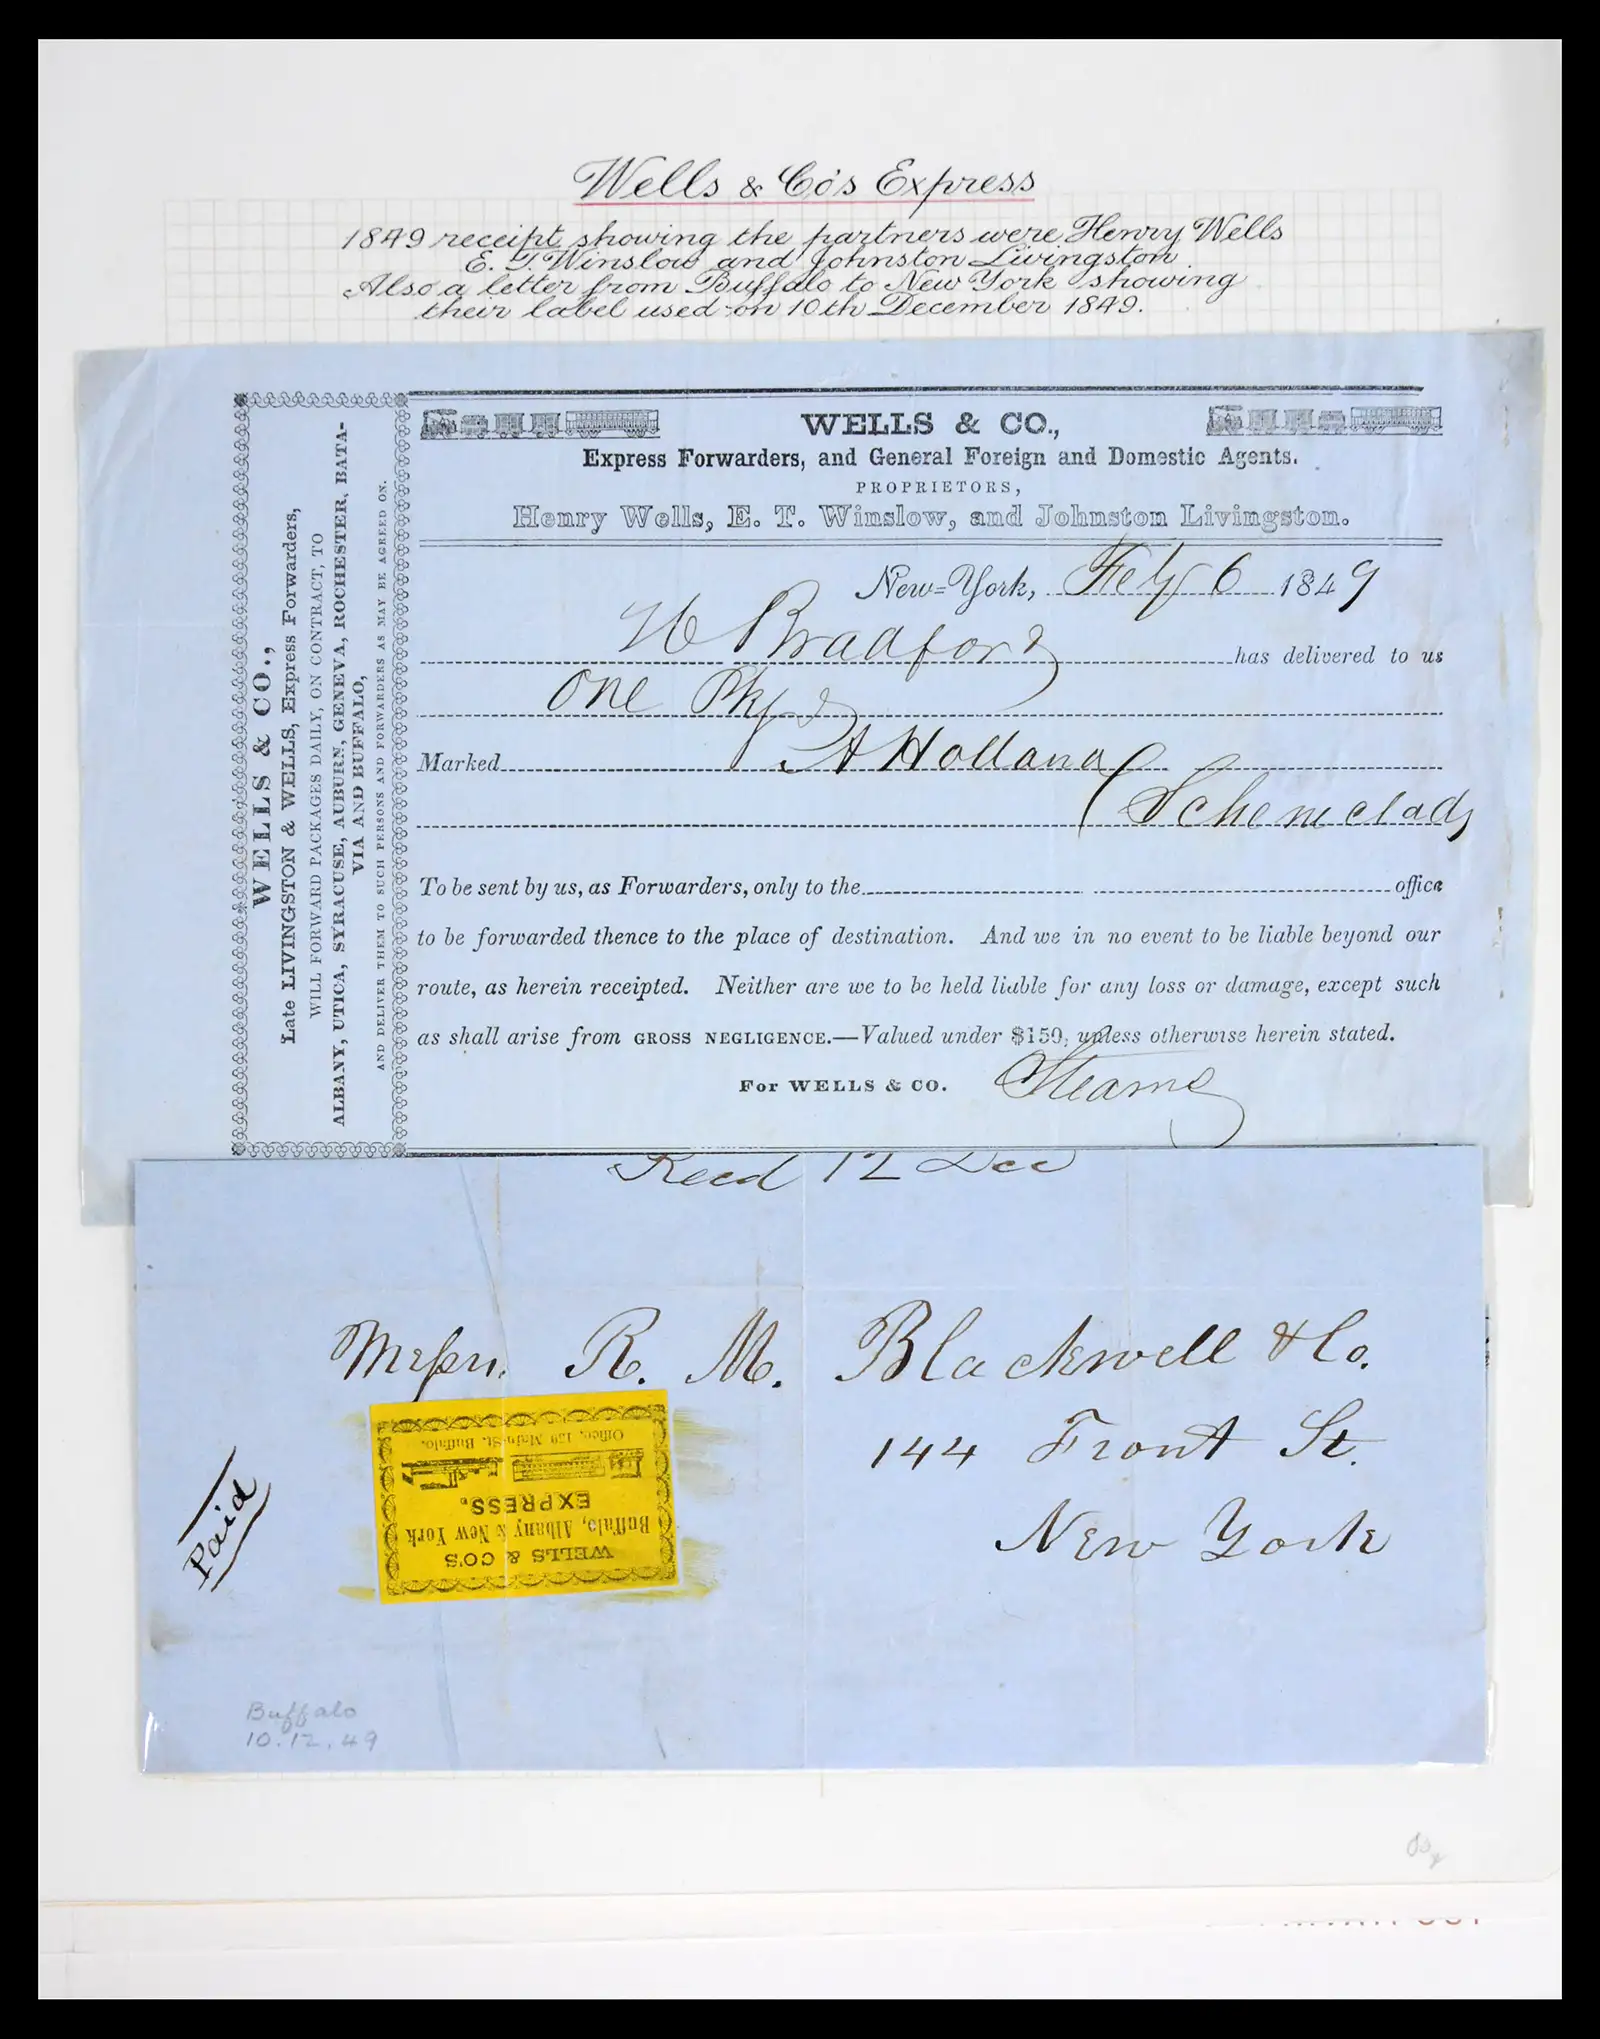 Wells & Co's Express
1849 receipt showing the partners were Henry Wells
E. T. Winslow and Johnston Livingston
Also a letter from Buffalo to New York showing
their label used on 10th December 1849.
WELLS & CO.,
Late LIVINGSTON & WELLS, Express Forwarders,
WILL FORWARD PACKAGES DAILY, ON CONTRACT, TO
ALBANY, UTICA, SYRACUSE, AUBURN, GENEVA, ROCHESTER, BATA-
VIA AND BUFFALO,
AND DELIVER THEM TO SUCH PERSONS AND FORWARDERS AS MAY BE AGREED ON.
WELLS & CO.,
Express Forwarders, and General Foreign and Domestic Agents.
PROPRIETORS,
Henry Wells, E. T. Winslow, and Johnston Livingston.
New=York, Feby 6 1849
Bradford has delivered to us
One Pkg
Marked A Holland
Schenectady
To be sent by us, as Forwarders, only to the office
to be forwarded thence to the place of destination. And we in no event to be liable beyond our
route, as herein receipted. Neither are we to be held liable for any loss or damage, except such
as shall arise from GROSS NEGLIGENCE.—Valued under $150, unless otherwise herein stated.
For WELLS & CO. Stearns
Recd 12 Dec
Messrs. R. M. Blackwell & Co.
144 Front St.
New York
Paid
WELLS & CO'S
Buffalo, Albany & New York
EXPRESS.
Office, 159 Main St. Buffalo.
Buffalo
10.12.49